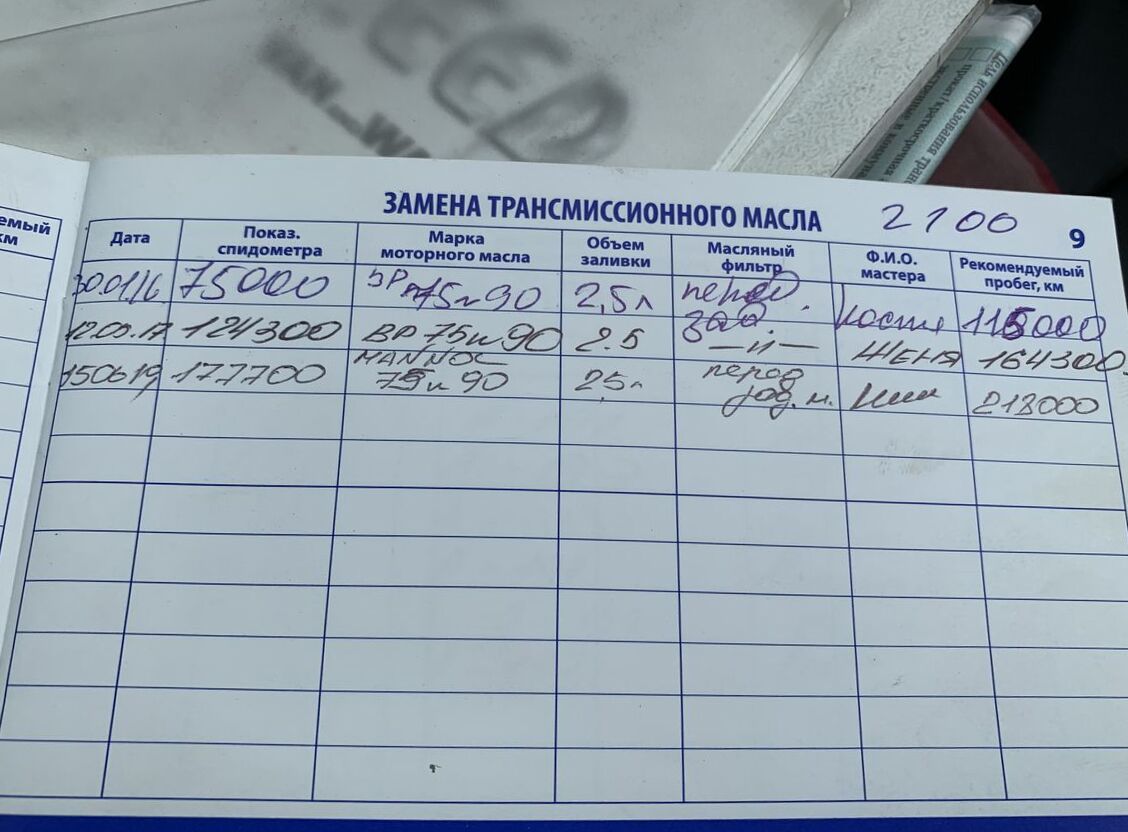 ЗАМЕНА ТРАНСМИССИОННОГО МАСЛА 2100 9
емый
км
Дата Показ. спидометра Марка моторного масла Объем заливки Масляный фильтр Ф.И.О. мастера Рекомендуемый пробег, км
30.01.16 75000 75и90 2,5л перед. зад. Костя 115000
12.05.17 124300 BP 75и90 2.5 —и— ЖЕНЯ 164300
150619 177700 MANNOL 75и90 25л перед зад. м. 218000
Цель использования